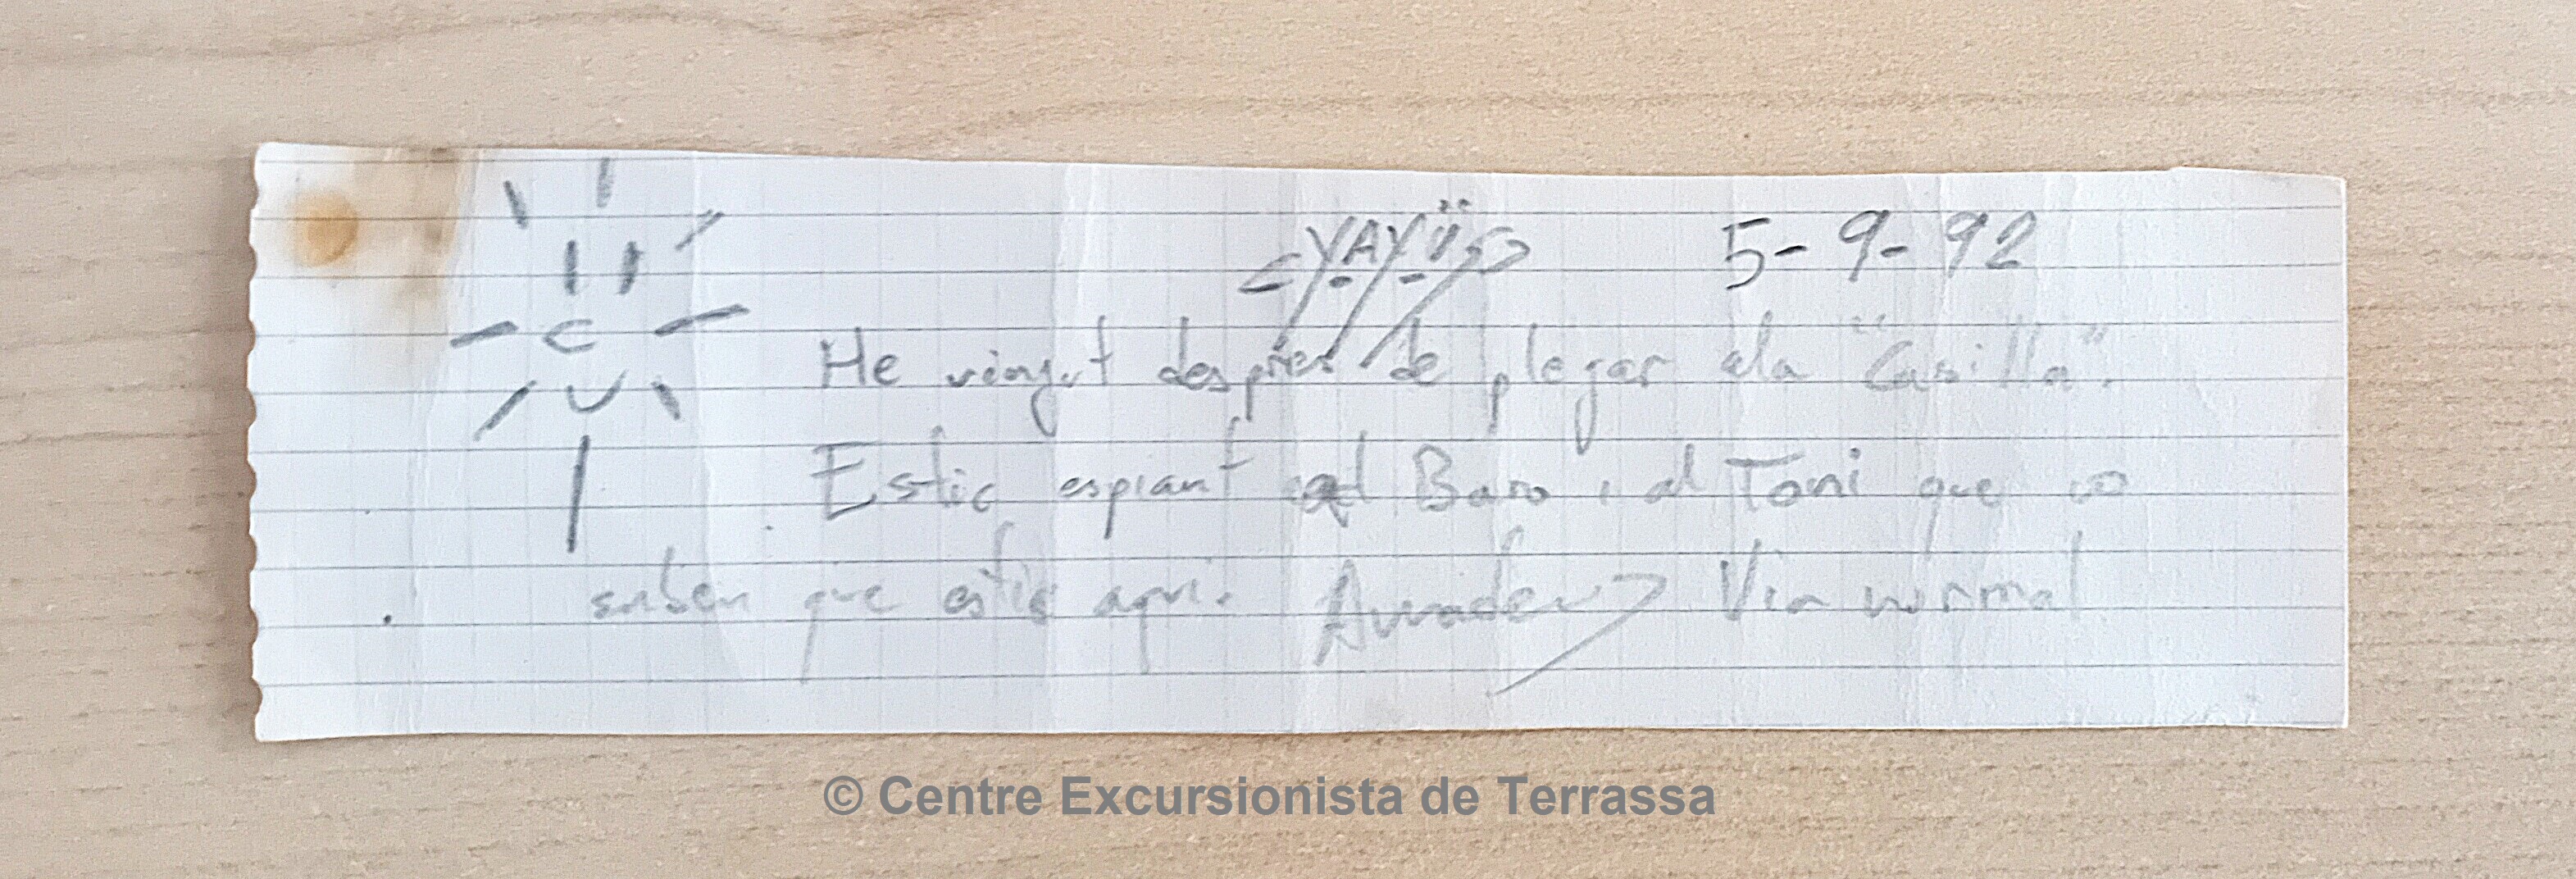 YAYÜ 5-9-92
He vingut despres de plegar a la "Casilla".
Estic espiant al Baro i al Toni que no
saben que estic aqui. Amadeu Via normal
© Centre Excursionista de Terrassa